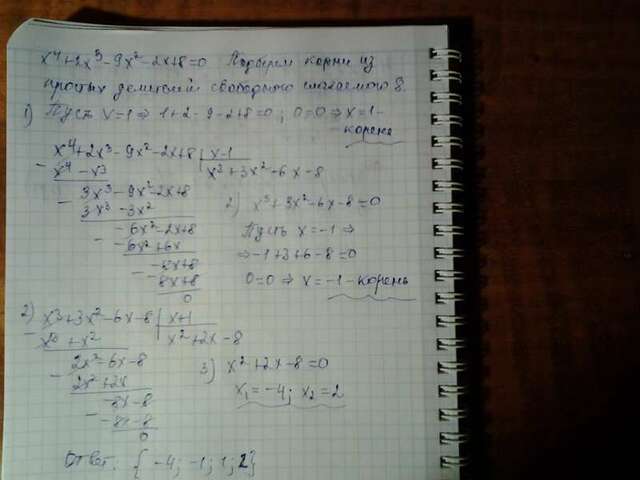 x⁴+2x³-9x²-2x+8=0 Подберем корни из
простых делителей свободного слагаемого 8.
1) Пусть x=1 ⇒ 1+2-9-2+8=0; 0=0 ⇒ x=1-
корень
x⁴+2x³-9x²-2x+8 | x-1
- x⁴-x³ x³+3x²-6x-8
3x³-9x²-2x+8
- 3x³-3x²
-6x²-2x+8
- -6x²+6x
-8x+8
- -8x+8
0
2) x³+3x²-6x-8=0
Пусть x=-1 ⇒
⇒ -1+3+6-8=0
0=0 ⇒ x=-1-корень
2) x³+3x²-6x-8 | x+1
- x³+x² x²+2x-8
2x²-6x-8
- 2x²+2x
-8x-8
- -8x-8
0
3) x²+2x-8=0
x₁=-4; x₂=2
Ответ: {-4; -1; 1; 2}